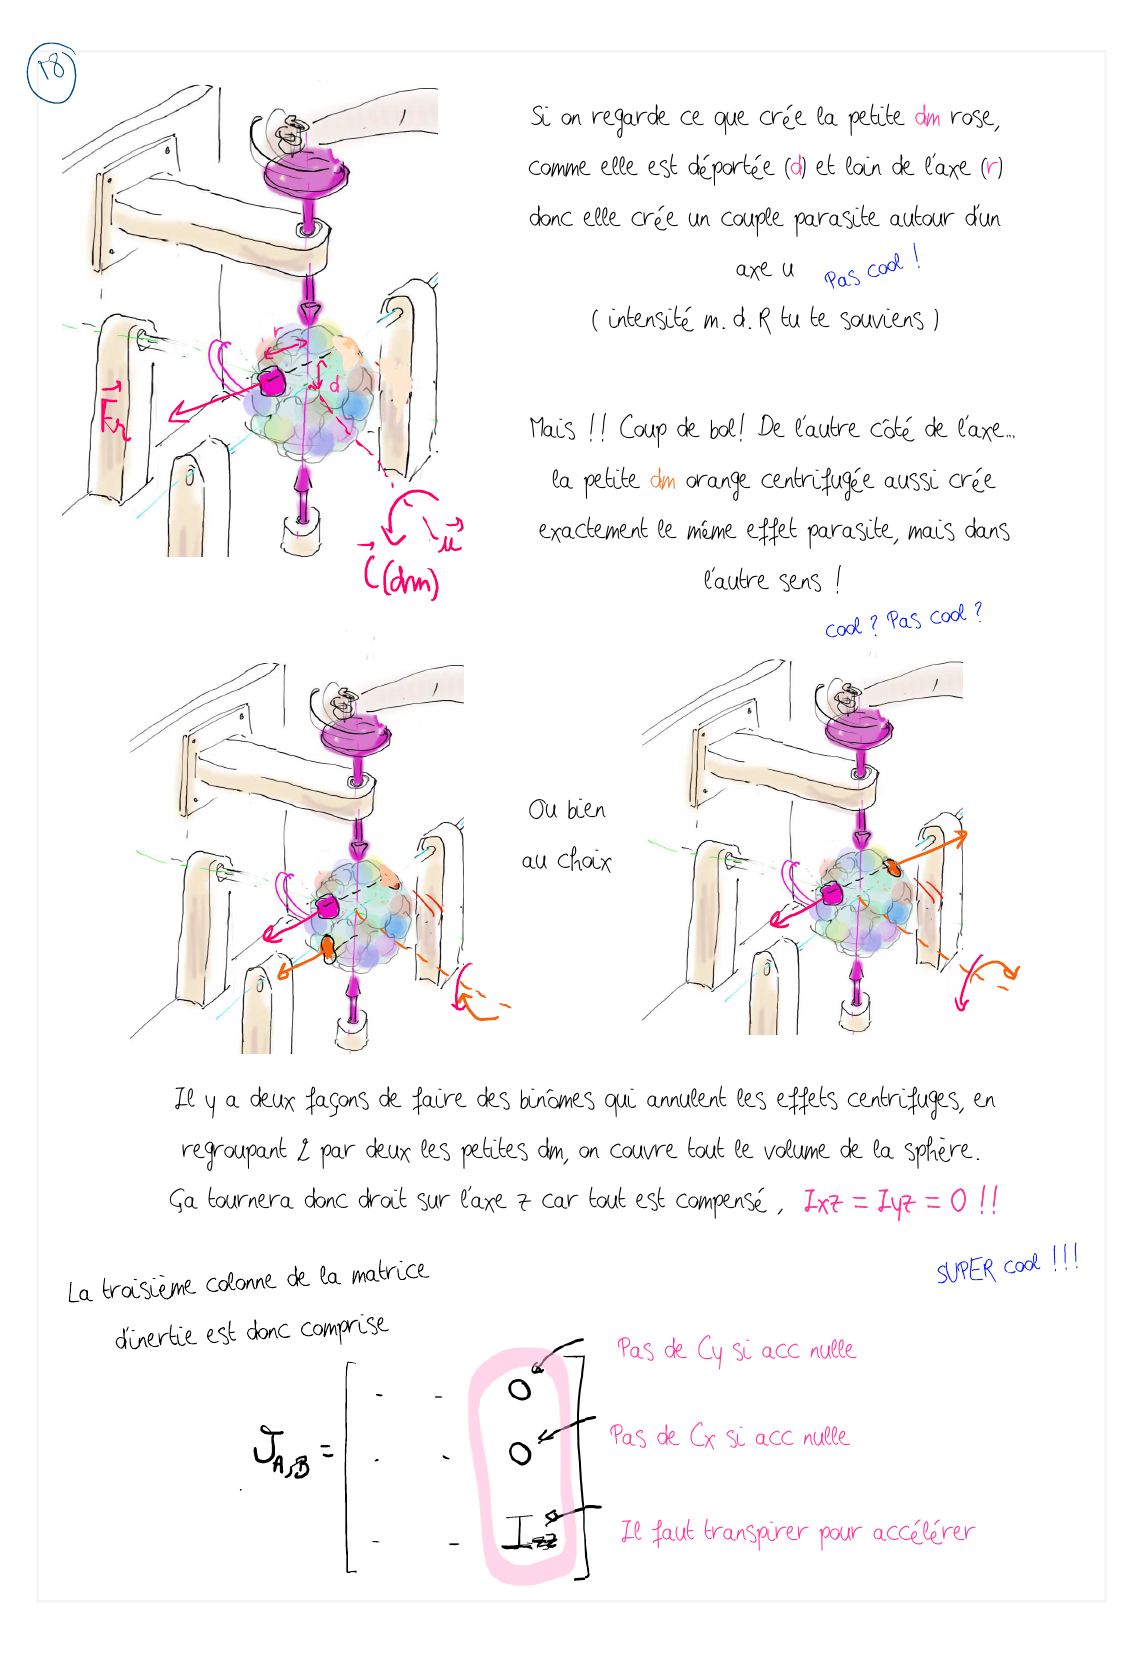 18
Si on regarde ce que crée la petite dm rose,
comme elle est déportée (d) et loin de l'axe (r)
donc elle crée un couple parasite autour d'un
axe u
Pas cool !
( intensité m. d. R tu te souviens )
r
d
Fr
u
C(dm)
Mais !! Coup de bol! De l'autre côté de l'axe...
la petite dm orange centrifugée aussi crée
exactement le même effet parasite, mais dans
l'autre sens !
cool ? Pas cool ?
Ou bien
au choix
Il y a deux façons de faire des binômes qui annulent les effets centrifuges, en
regroupant 2 par deux les petites dm, on couvre tout le volume de la sphère.
Ça tournera donc droit sur l'axe z car tout est compensé, Ixz = Iyz = 0 !!
SUPER cool !!!
La troisième colonne de la matrice
d'inertie est donc comprise
Pas de Cy si acc nulle
- - 0
J A,B =
Pas de Cx si acc nulle
. - 0
- - Izz
Il faut transpirer pour accélérer